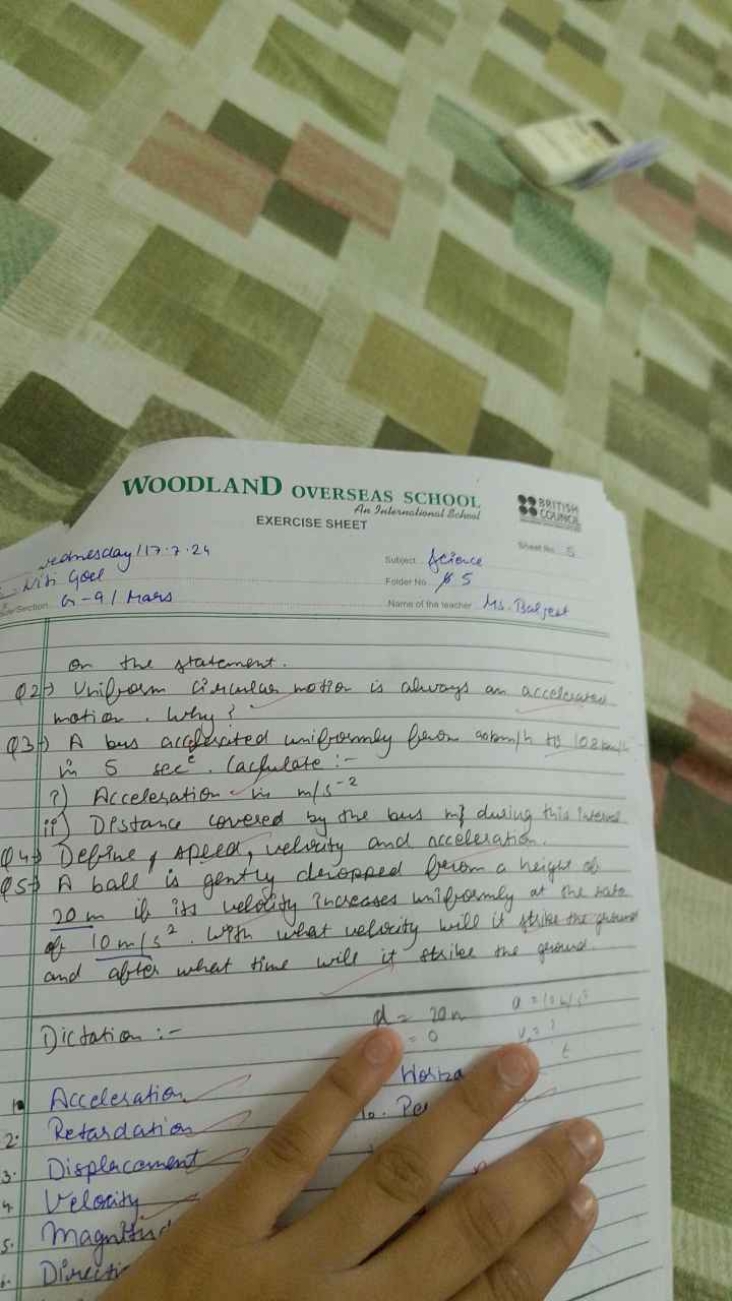 WOODLAND OVERSEAS SCHOOL
An International School
BRITISH COUNCIL
EXERCISE SHEET
Sheet No. 5
Wednesday/17.7.24
Subject Science
Niti Goel
Folder No. 5
Section G-9/ Mars
Name of the teacher Ms. Baljeet
on the statement.
Q2→ Uniform circular motion is always an accelerated
motion. Why?
Q3→ A bus accelerated uniformly from to
in 5 sec. Calculate :-
i) Acceleration in m/s-2
ii) Distance covered by the bus during this interval
Q4→ Define, speed, velocity and acceleration.
Q5→ A ball is gently dropped from a height of
20 m if its velocity increases uniformly at the rate
of 10 m/s². With what velocity will it strike the ground
and after what time will it strike the ground.
Dictation :-
d = 20m
a = 10 m/s²
= 0
v = ?
t
1. Acceleration
2. Retardation
10. Pe
3. Displacement
4. Velocity
5. Magnitud
6. Directi